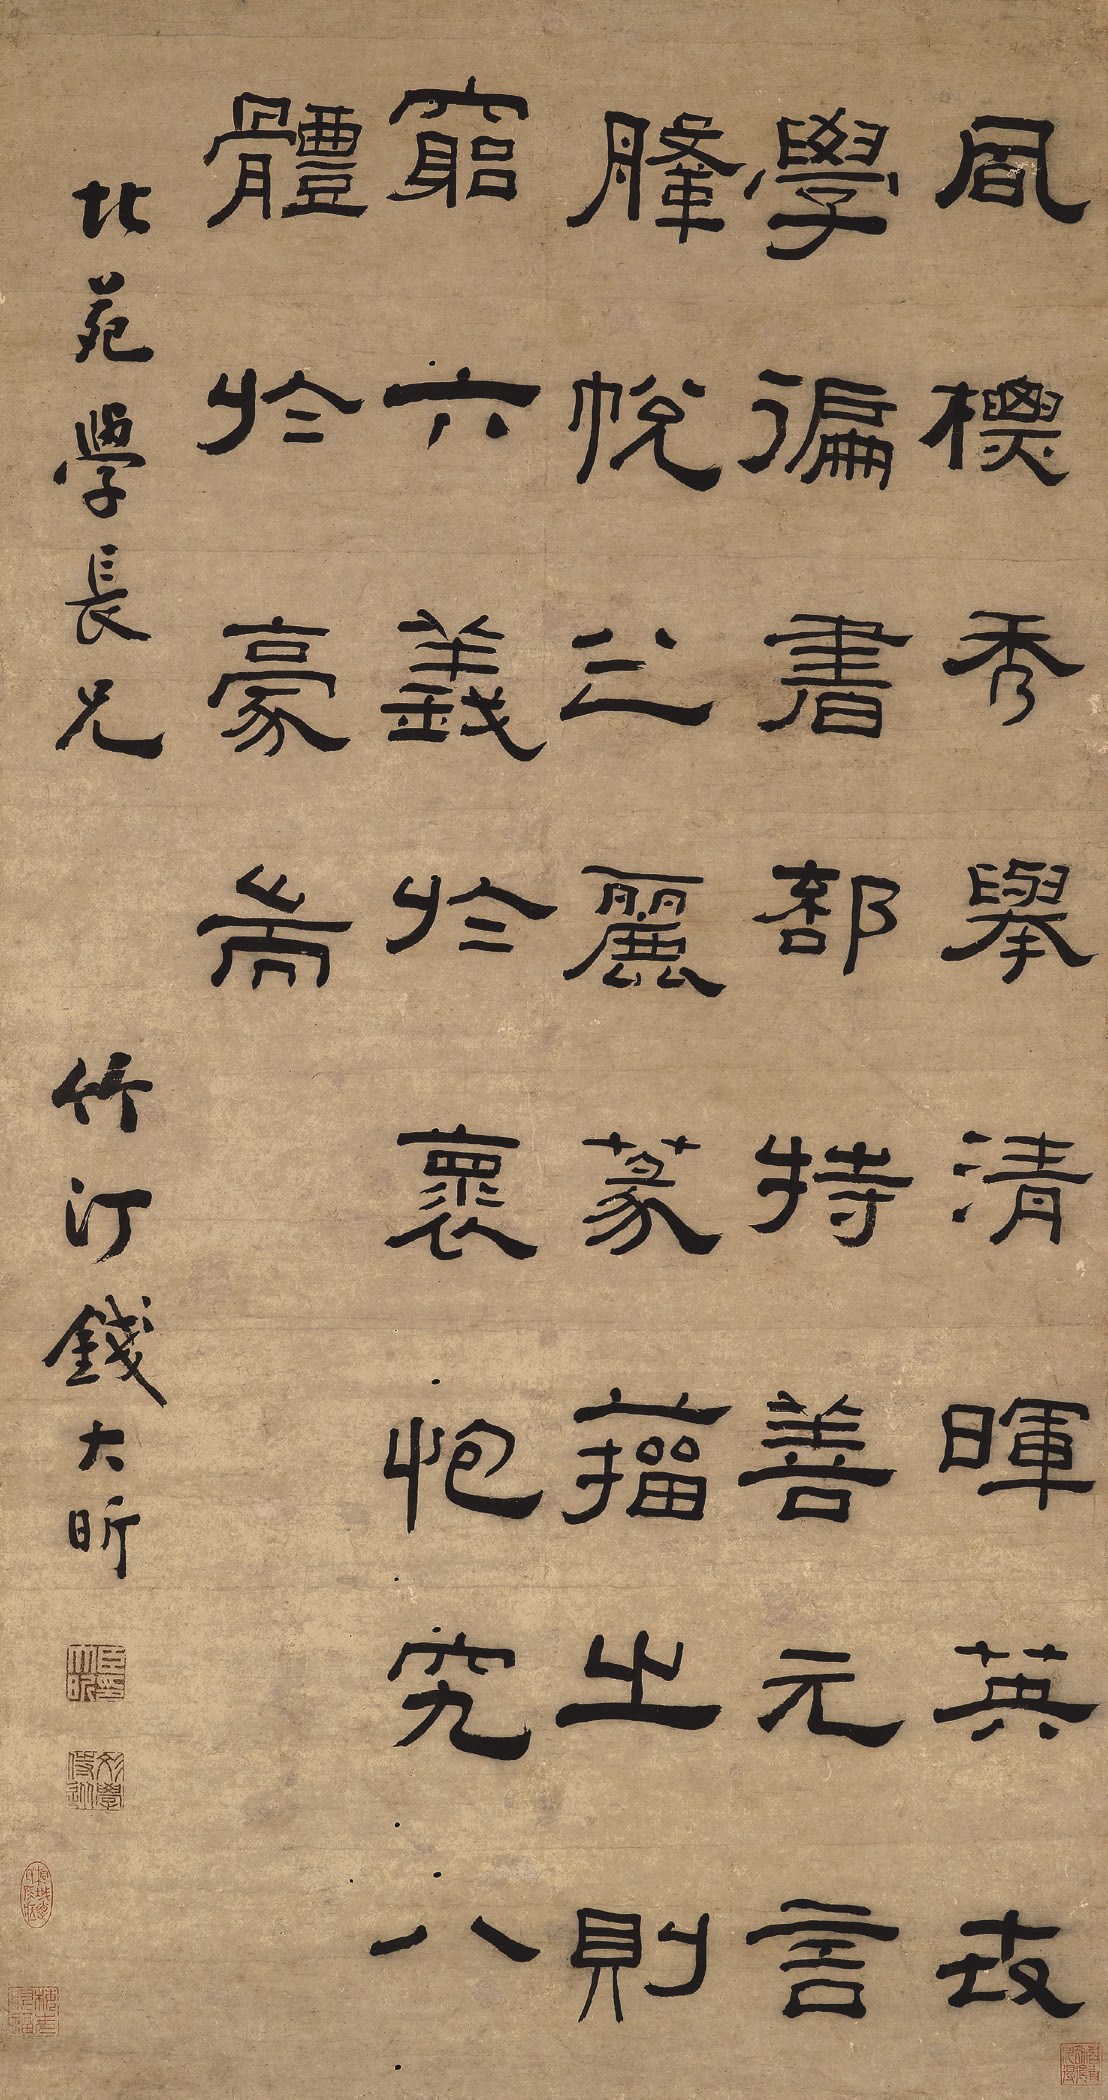 風標秀舉清暉英犮
學徧書部特善元言
鞶帨之麗篆籀之則
窮六義於褱抱究八
體於豪耑
北苑學長兄　竹汀錢大昕